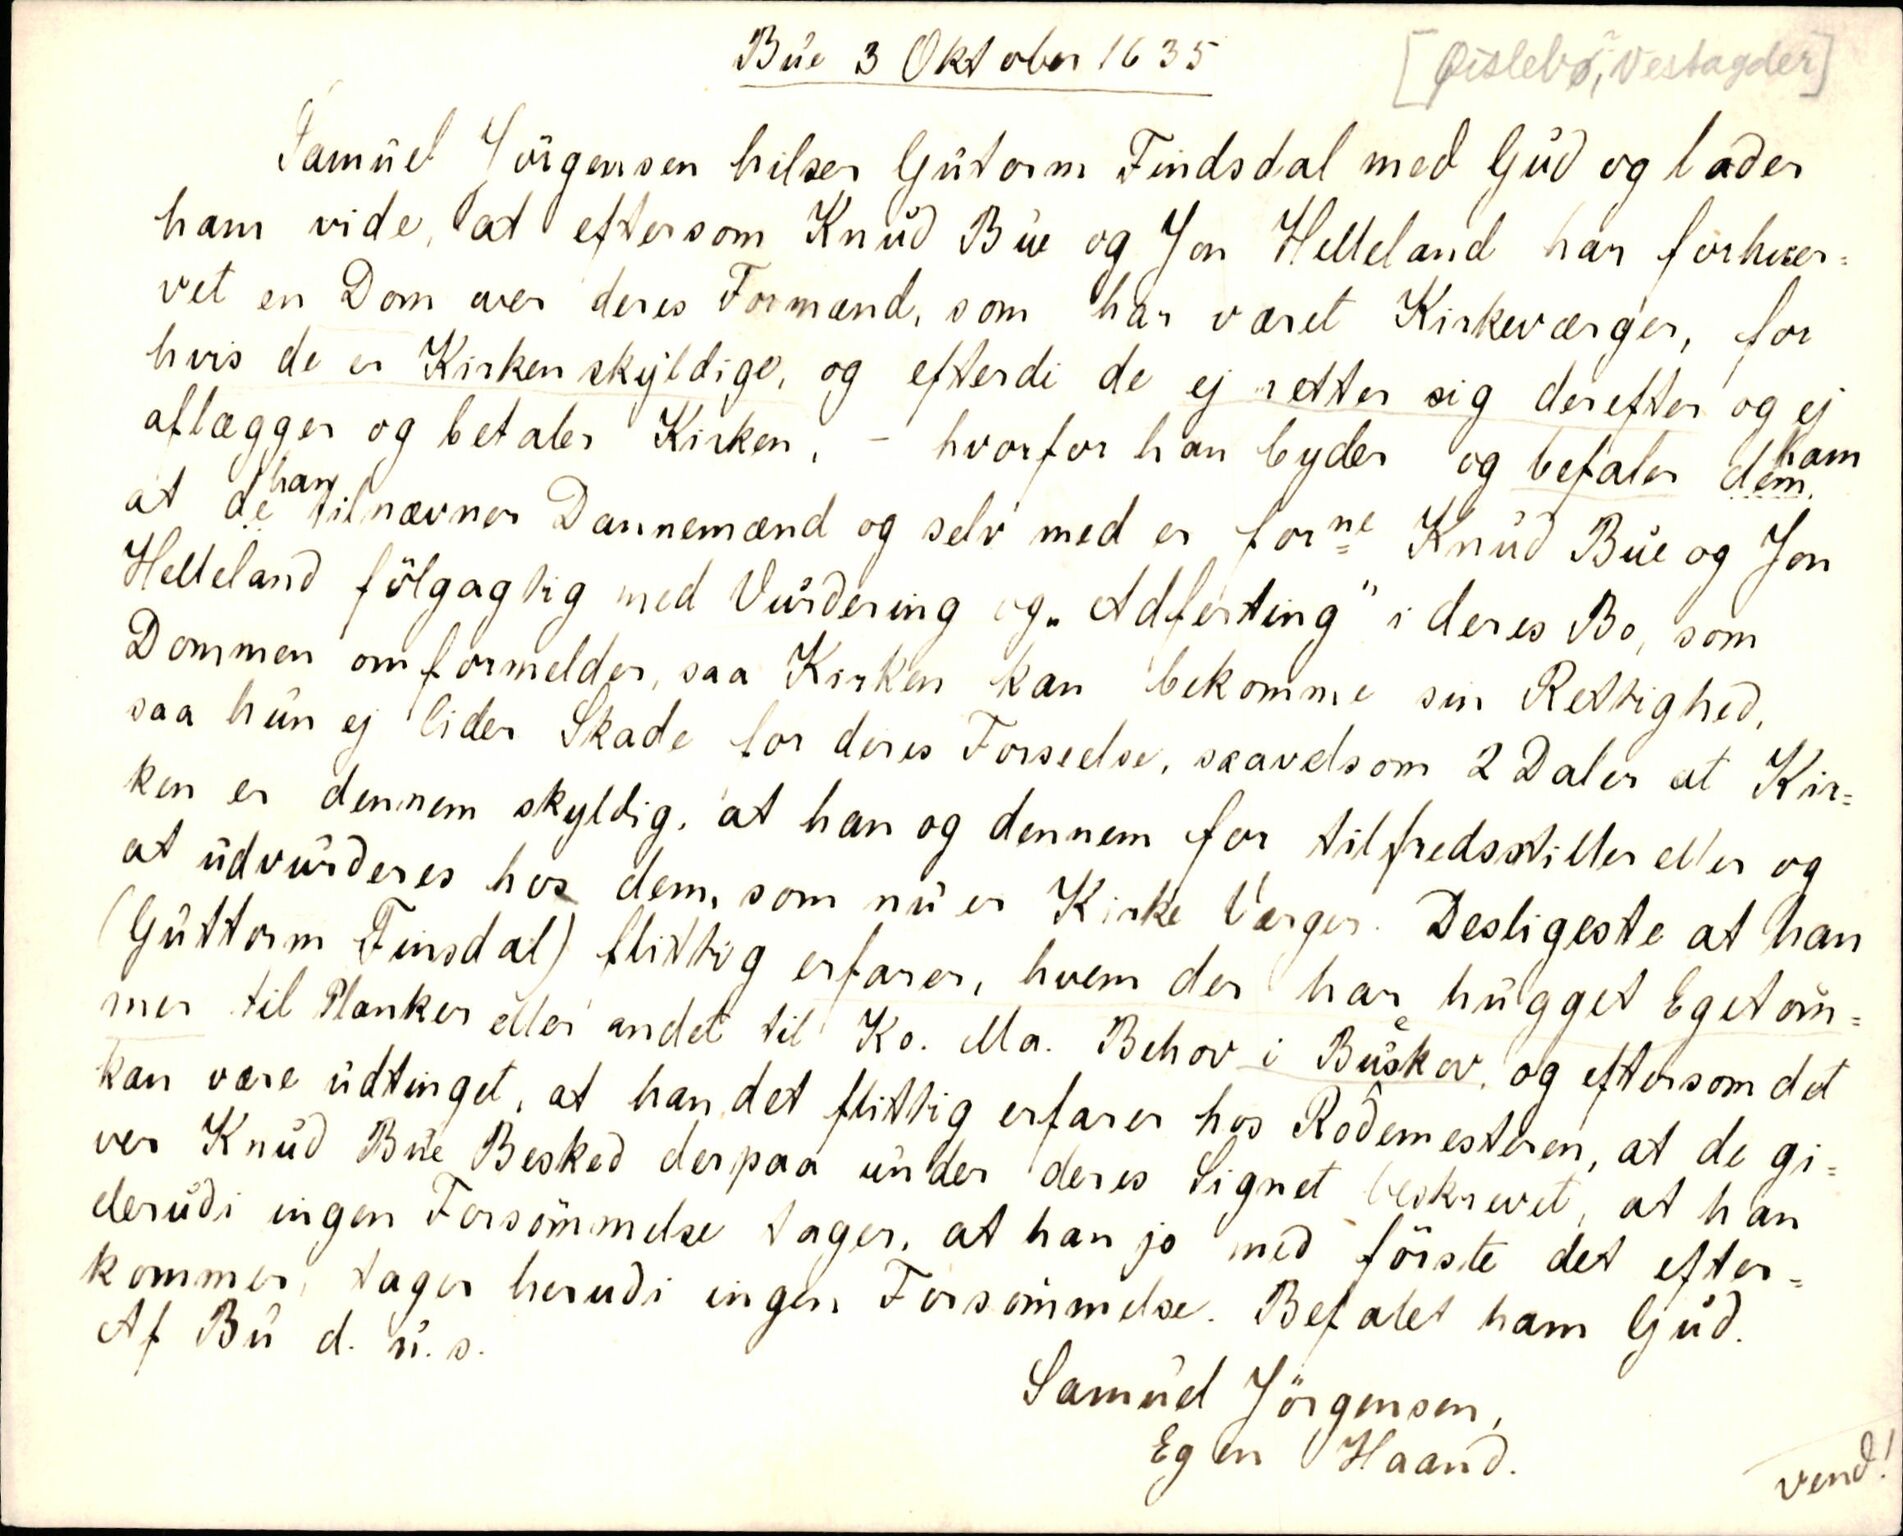 Bue 3 Oktober 1635
[Øislebø, Vestagder]
Samuel Jörgensen hilser Gutorm Findsdal med Gud og lader
ham vide, at eftersom Knud Bue og Jon Helleland har forhver=
vet en Dom over deres Formænd, som har været Kirkeværger, for
hvis de er Kirken skyldige, og efterdi de ej retter sig derefter og ej
aflægger og betaler Kirken, - hvorfor han byder og befaler dem ham
at de han tilnævner Dannemænd og selv med er forne Knud Bue og Jon
Helleland fölgagtig med Vurdering og „Adferting" i deres Bo, som
Dommen omformelder, saa Kirken kan bekomme sin Rettighed,
saa hun ej lider Skade for deres Forseelse, saavelsom 2 Daler at Kir=
ken er dennem skyldig, at han og dennem for tilfredsstiller eller og
at udvurderes hos dem, som nu er Kirke Værger. Desligeste at han
(Guttorm Finsdal) flittig erfarer, hvem der har hugget Egetöm=
mer til Planker eller andet til Ko. Ma. Behov i Buskov, og eftersom det
kan være udtinget, at han det flittig erfarer hos Rodemesteren, at de gi=
ver Knud Bue Besked derpaa under deres Signet beskrevet, at han
derudi ingen Forsömmelse tager, at han jo med förste det efter=
kommer, tager herudi ingen Forsömmelse. Befalet ham Gud.
Af Bu d. u. s.
Samuel Jörgensen,
Egen Haand.
vend!